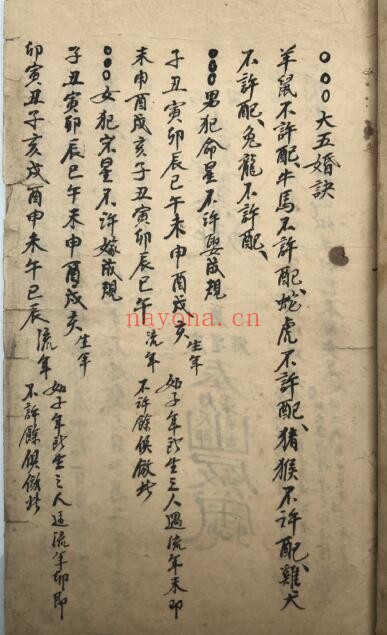 ○○○大五婚訣
羊鼠不許配、牛馬不許配、蛇虎不許配、猪猴不許配、雞犬
不許配、兔龍不許配、
●●●男犯命星不許娶規
子丑寅卯辰巳午未申酉戌亥生年 如子年所生之人遇流年未即
未申酉戌亥子丑寅卯辰巳午流年 不許餘俱倣此
○○○女犯星不許嫁規
子丑寅卯辰巳午未申酉戌亥生年 如子年所生之人流年卯即
卯寅丑子亥戌酉申未午巳辰流年 不許餘俱倣此
nayona.cn